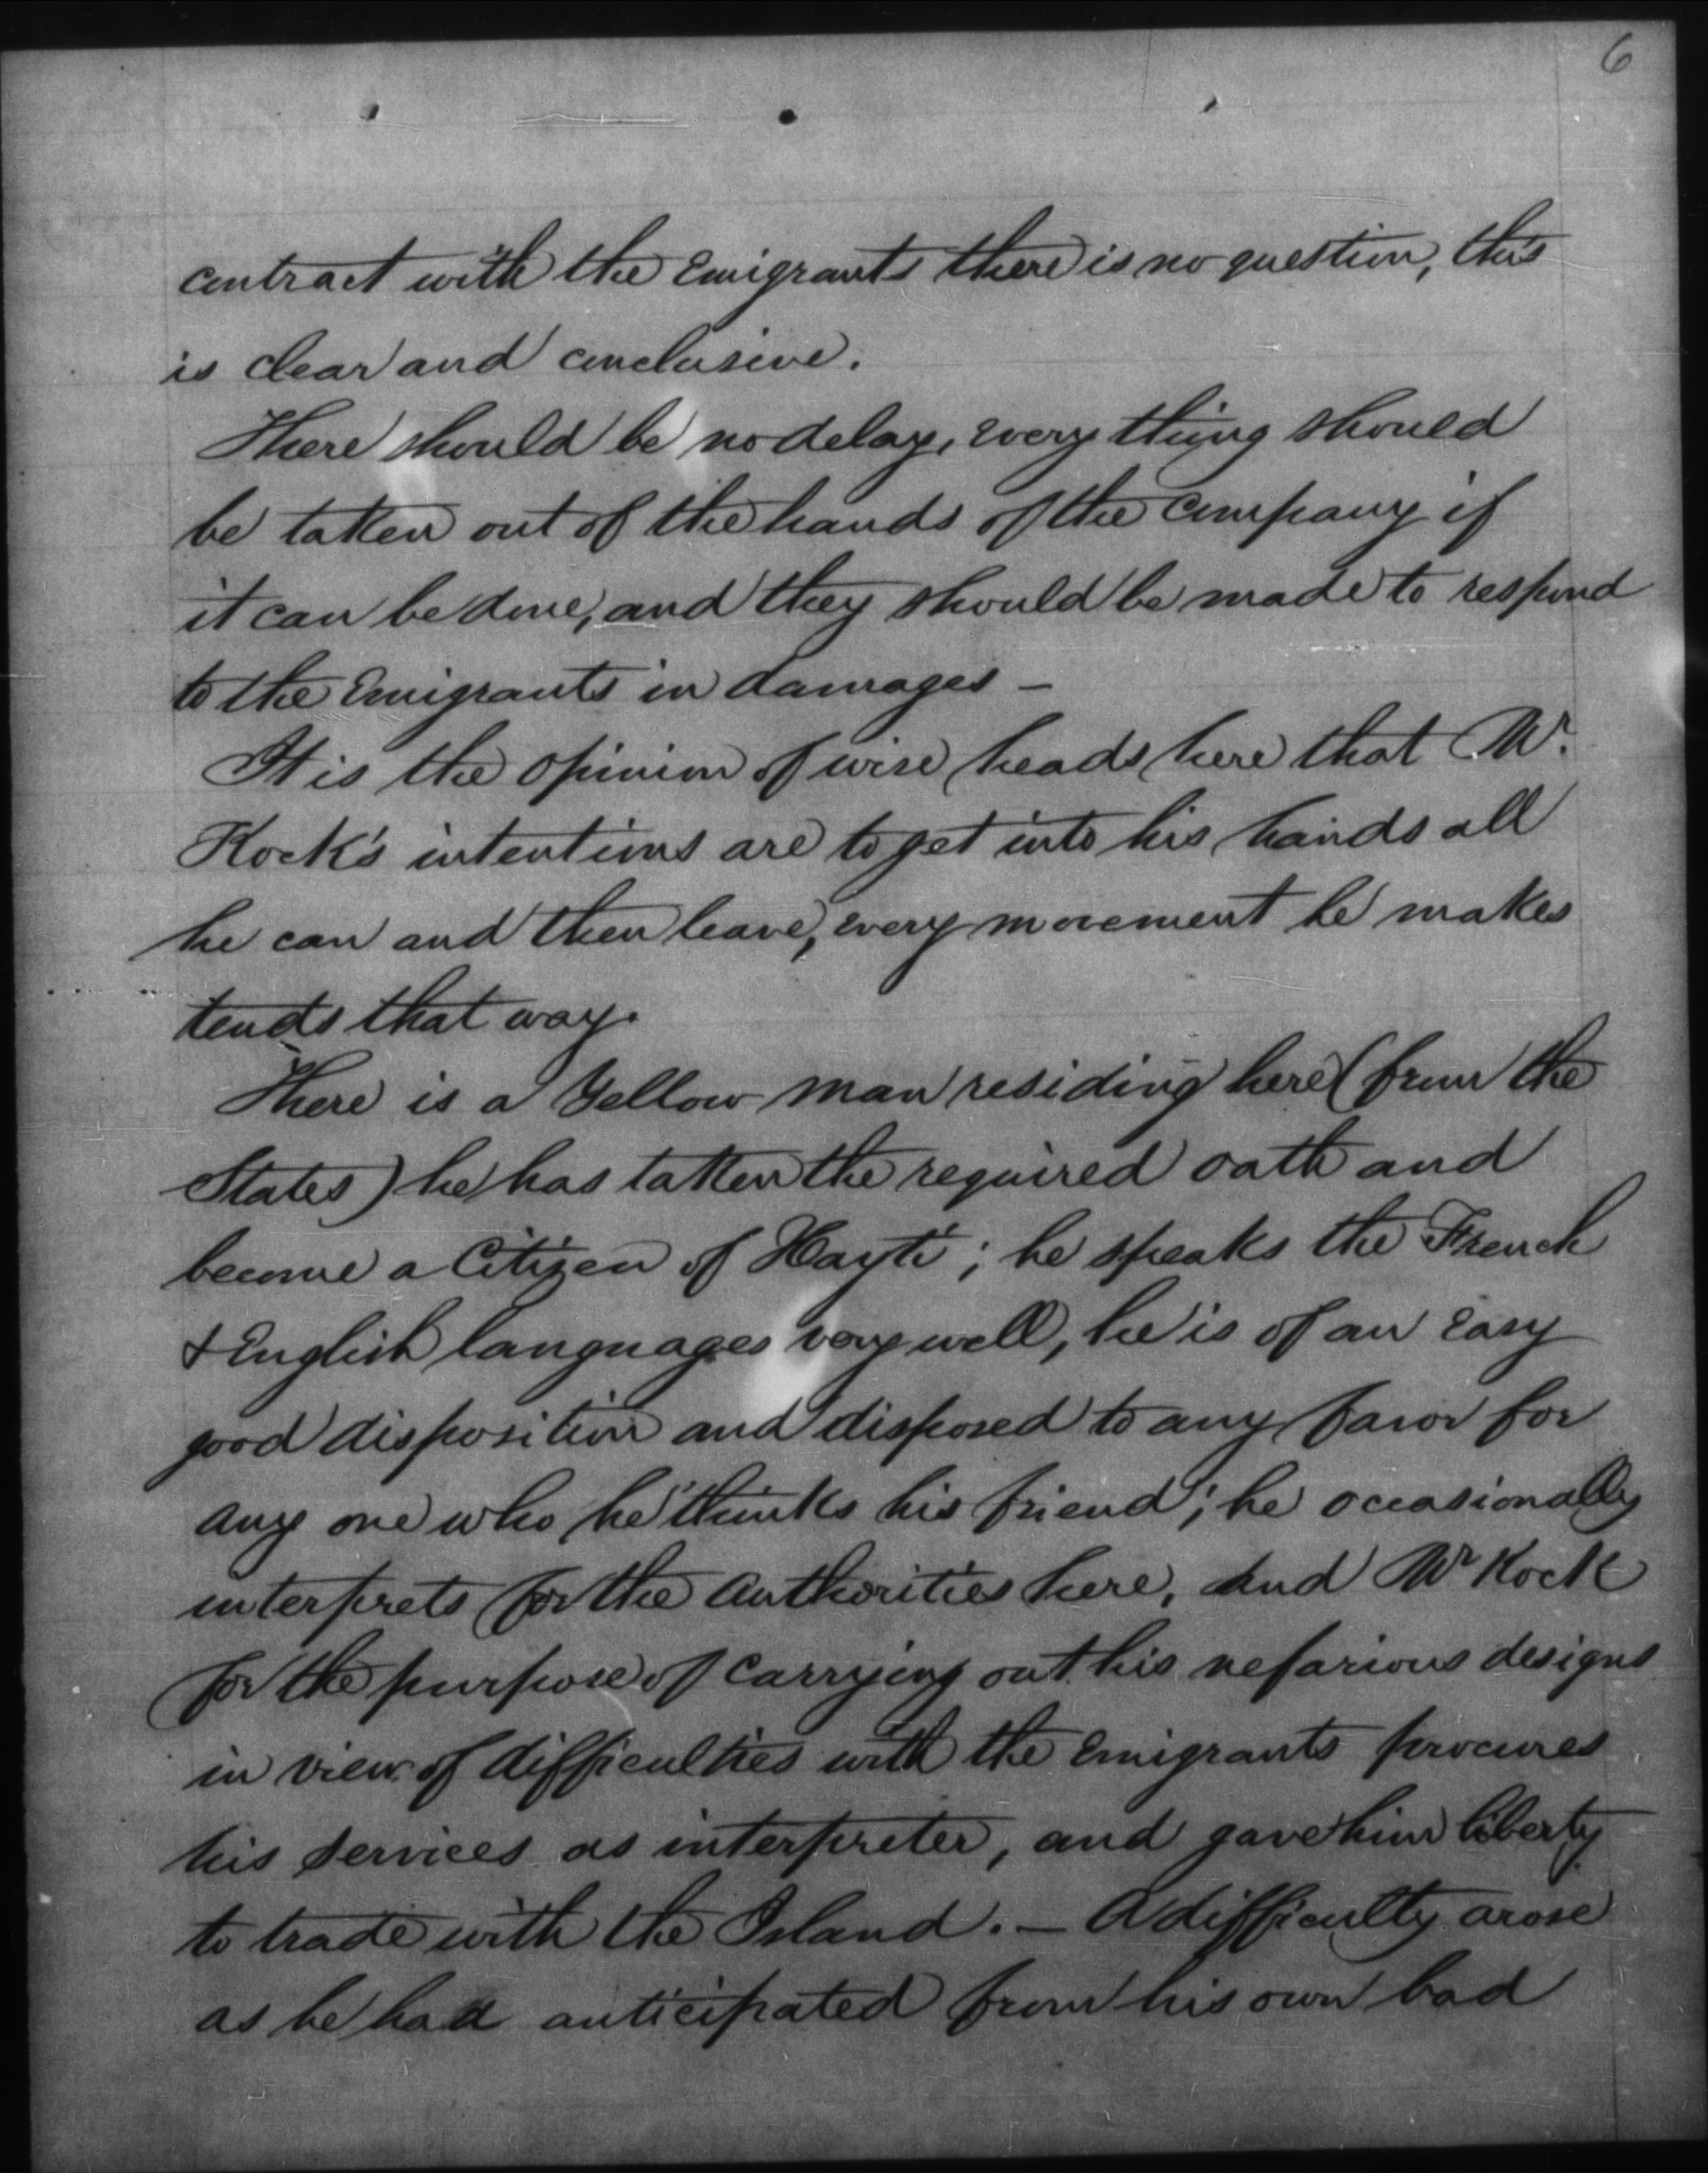 6
contract with the Emigrants there is no question, this
is clear and conclusive.
There should be no delay, every thing should
be taken out of the hands of the Company if
it can be done, and they should be made to respond
to the Emigrants in damages —
It is the opinion of wise heads here that Mr.
Kock's intentions are to get into his hands all
he can and then leave, every movement he makes
tends that way.
There is a Yellow man residing here (from the
States) he has taken the required oath and
become a Citizen of Hayti; he speaks the French
& English languages very well, he is of an easy
good disposition and disposed to any favor for
any one who he thinks his friend; he occasionally
interprets for the Authorities here, and Mr Kock
for the purpose of carrying out his nefarious designs
in view of difficulties with the Emigrants procures
his services as interpreter, and gave him liberty
to trade with the Island. — A difficulty arose
as he had anticipated from his own bad